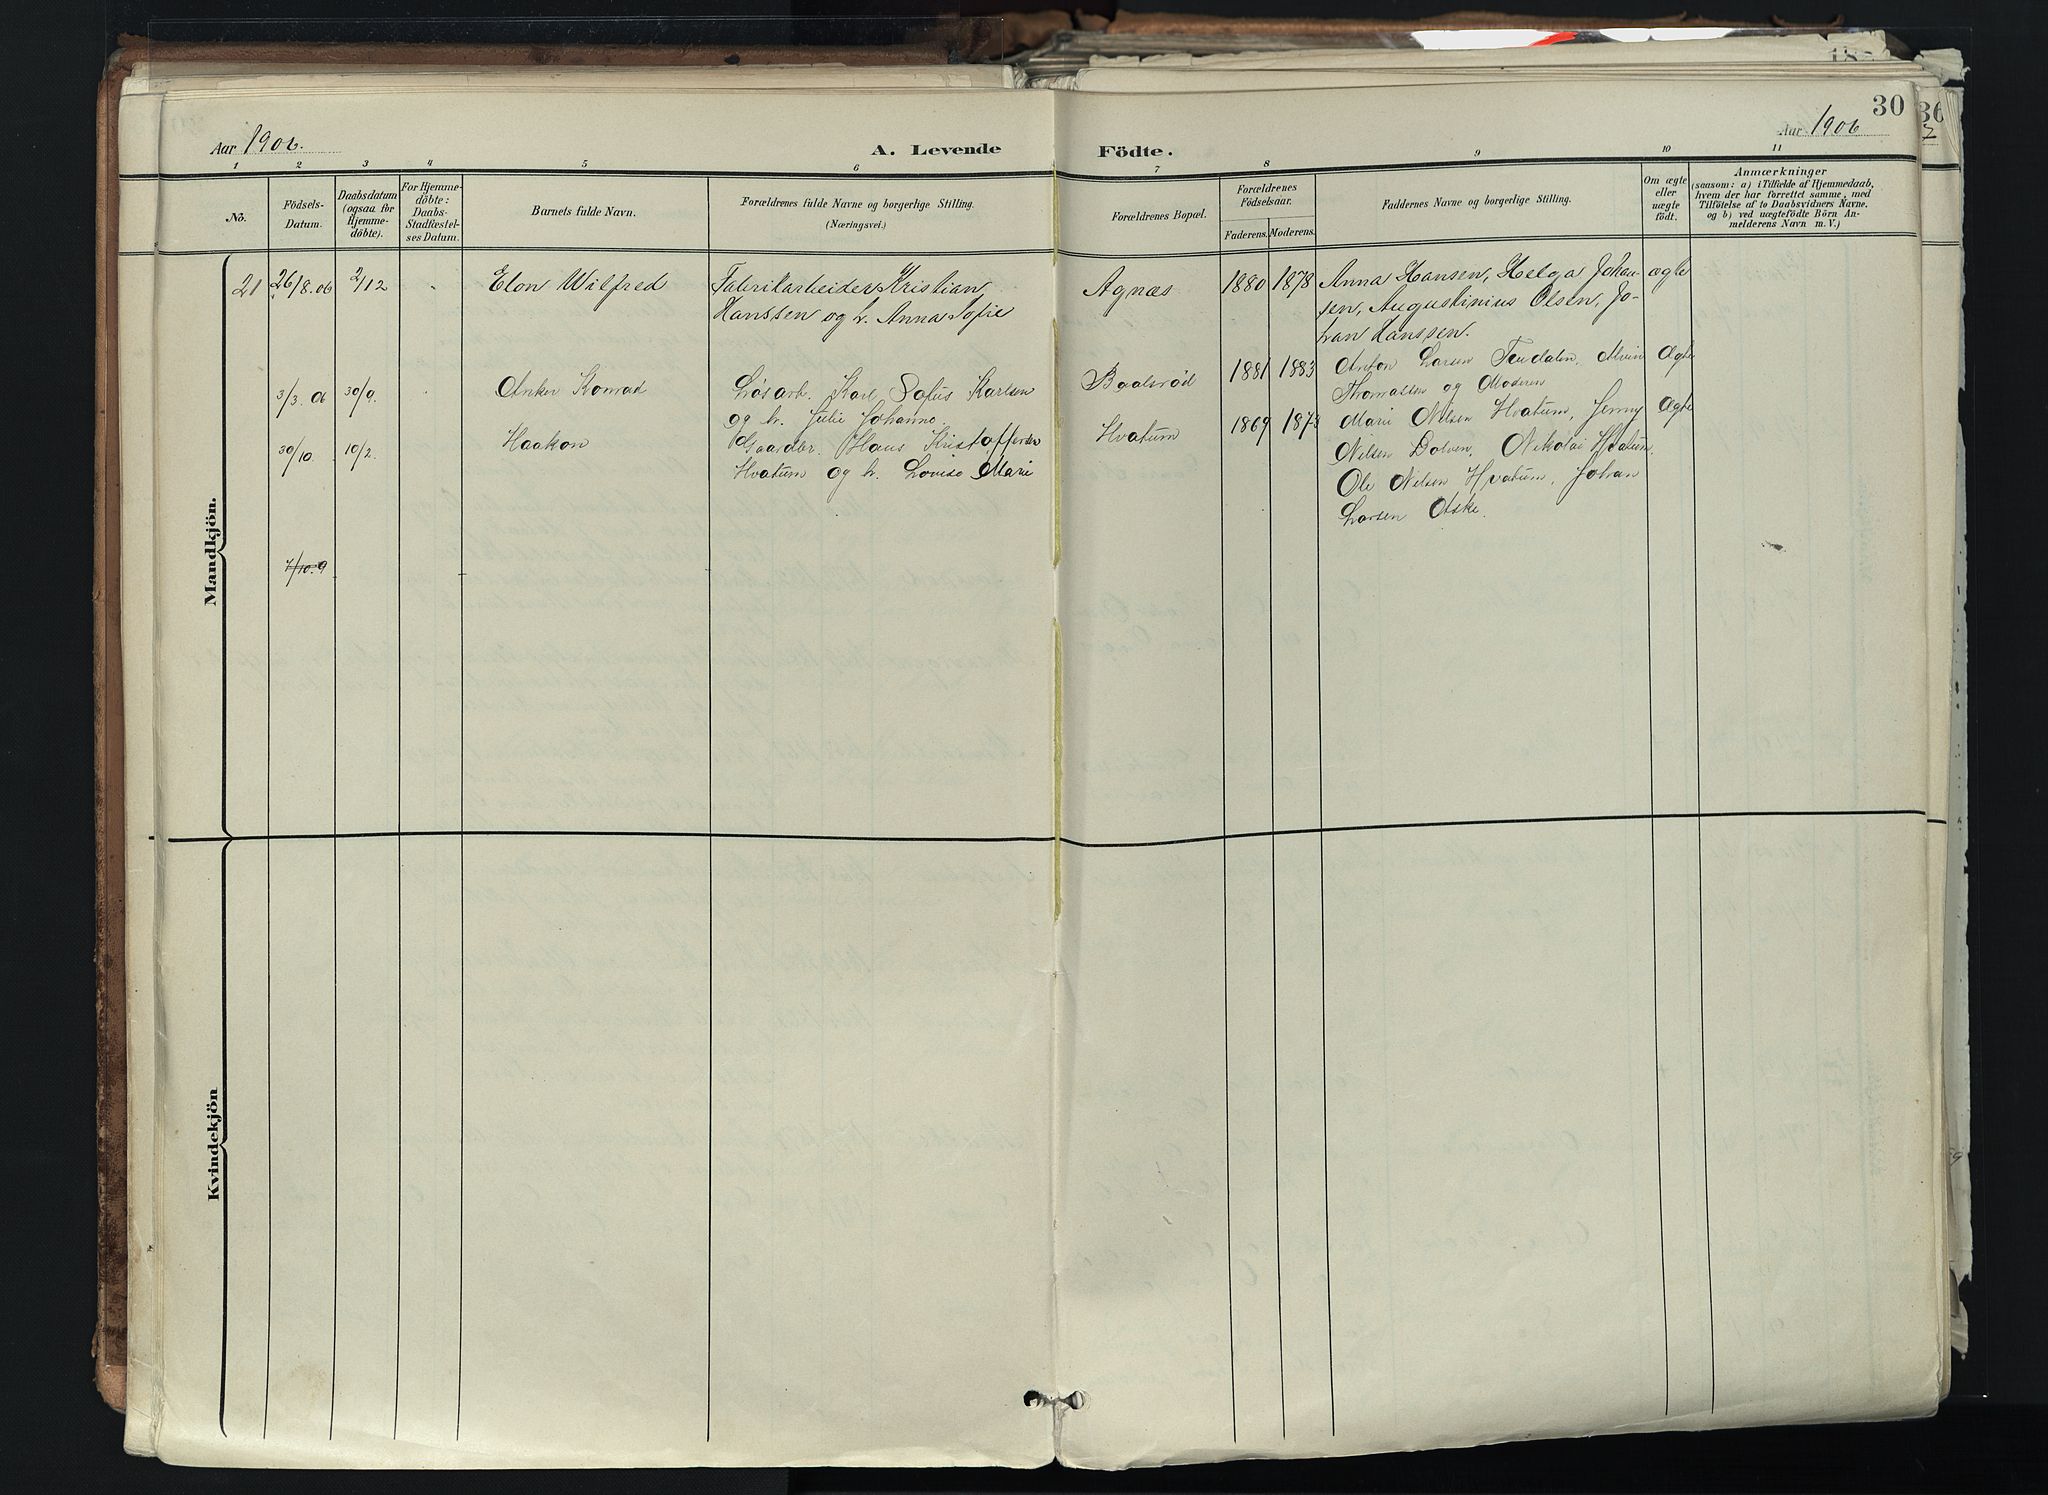 30
36
Aar 1906.
A. Levende
Födte.
Aar 1906
1 2 3 4 5 6 7 8 9 10 11
No.
Födsels-
Datum.
Daabsdatum
(ogsaa for
Hjemme-
döbte).
For Hjemme-
döbte:
Daabs-
Stadfæstel-
ses Datum.
Barnets fulde Navn.
Forældrenes fulde Navne og borgerlige Stilling.
(Næringsvei.)
Forældrenes Bopæl.
Forældrenes
Födselsaar.
Faderens. Moderens.
Faddernes Navne og borgerlige Stilling.
Om ægte
eller
uægte
födt.
Anmærkninger
(saasom: a) i Tilfælde af Hjemmedaab,
hvem der har forrettet samme, med
Tilföielse af to Daabsvidners Navne,
og b) ved uægtefödte Börn An-
melderens Navn m. V.)
Mandkjön.
21 26/8.06 2/12 Elon Wilfred Fabrikarbeider Kristian Agnæs 1880 1878 Anna Hansen, Helga Johan- ægte
Hanssen og h. Anna Sofie
sen, Augustinius Olsen, Jo-
han Hanssen.
3/3.06 30/9. Anker Konrad Løsarb. Karl Sofus Karlsen Baalsrød 1881 1883 Anton Larsen Alvin Ægte
og h. Julie Johanne
Thomassen og Moderen
30/10. 10/2. Haakon Gaardbr. Hans Kristoffersen Hvatum 1869 1873 Marie Nilsen Hvatum, Jenny Ægte
Hvatum og h. Lovise Marie
Nilsen Bolven, Nikolai Hvatum,
Ole Nilsen Hvatum, Johan
Larsen Aske.
7/10.9
Kvindekjön